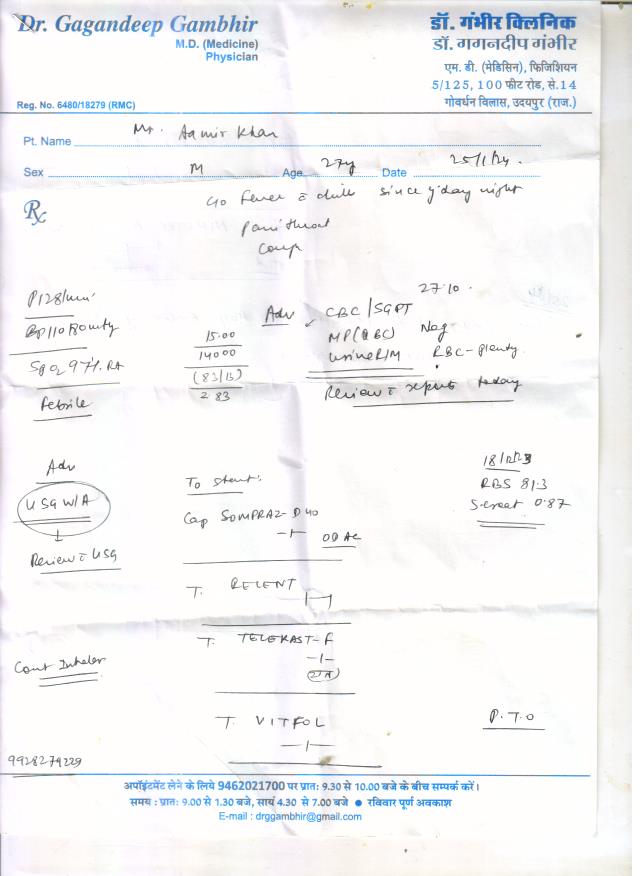 Dr. Gagandeep Gambhir
M.D. (Medicine)
Physician
Reg. No. 6480/18279 (RMC)
डॉ. गंभीर क्लिनिक
डॉ. गगनदीप गंभीर
एम. डी. (मेडिसिन), फिजिशियन
5/125, 100 फीट रोड, से.14
गोवर्धन विलास, उदयपुर (राज.)
Pt. Name Mr. Aamir Khan
Sex M Age 27y Date 25/1/24.
Rx
c/o Fever c chills since y'day night
Pain throat
Cough
P 128/min
BP 110/80 mmHg
SpO2 97% RA
Febrile
15.00
14000
(83/13)
2.83
Adv CBC/SGPT 27.10.
MP(QBC) Neg
Urine R/M RBC-plenty.
Review c reports today
Adv
USG W/A
Review c USG
To start:
Cap SOMPRAZ-D 40
-1- OD AC
T. RELENT
T. TELEKAST-F
-1-
रात
T. VITFOL
-1-
RBS 81.3
S.creat 0.87
Cont Inhaler
P.T.O
9928279229
अपॉइंटमेंट लेने के लिये 9462021700 पर प्रात: 9.30 से 10.00 बजे के बीच सम्पर्क करें।
समय : प्रात: 9.00 से 1.30 बजे, सायं 4.30 से 7.00 बजे ● रविवार पूर्ण अवकाश
E-mail : drggambhir@gmail.com